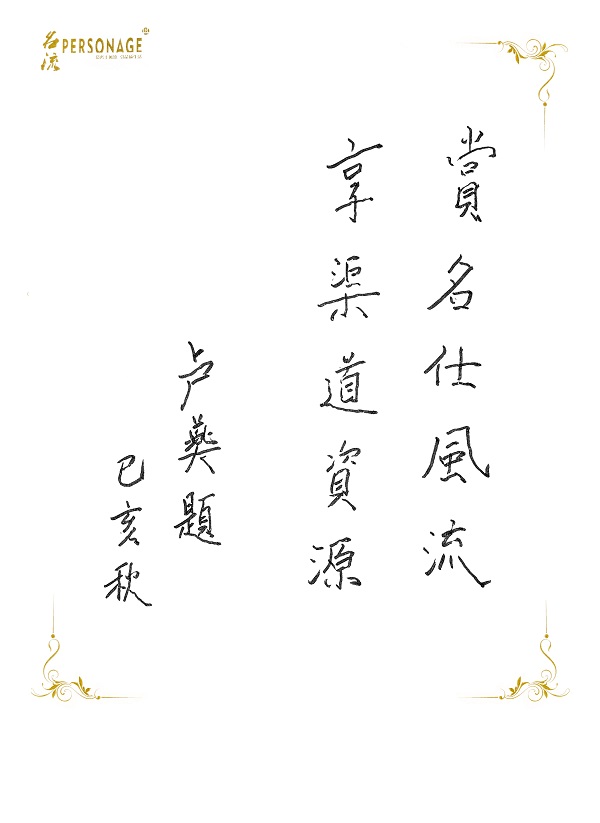 賞名仕風流
享渠道資源
卢
題
己亥秋
名流
PERSONAGE